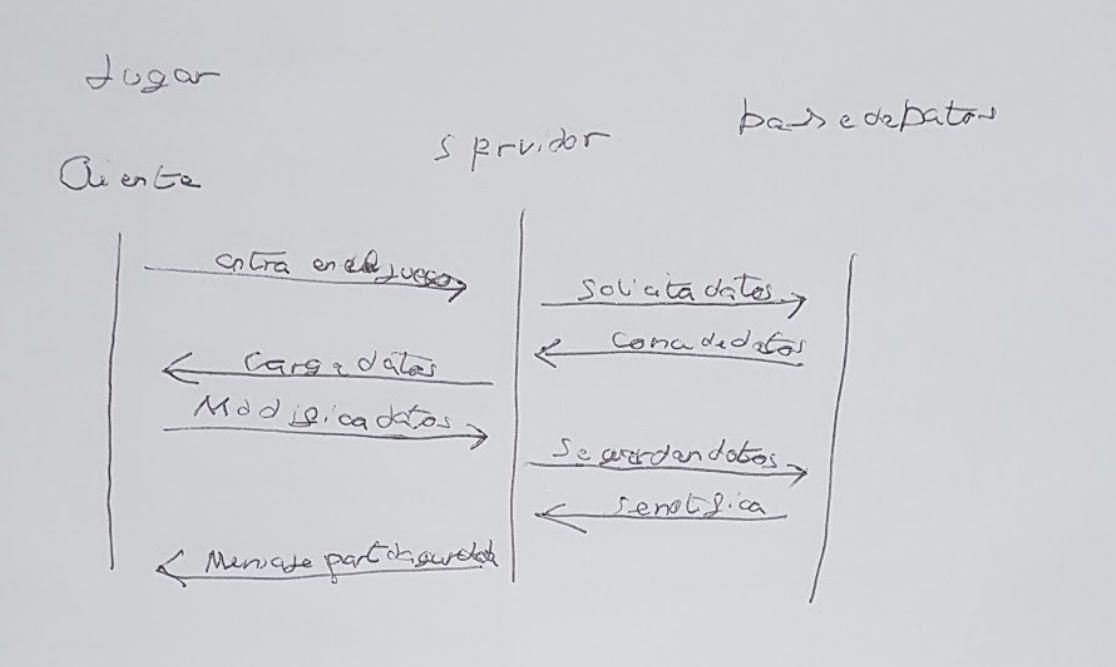 Jugar
base de Datos
Servidor
Cliente
entra en el juego
Solicita datos
datos
Carga datos
Modifica datos
Se guardan datos
Se notifica
Mensaje partida guardada